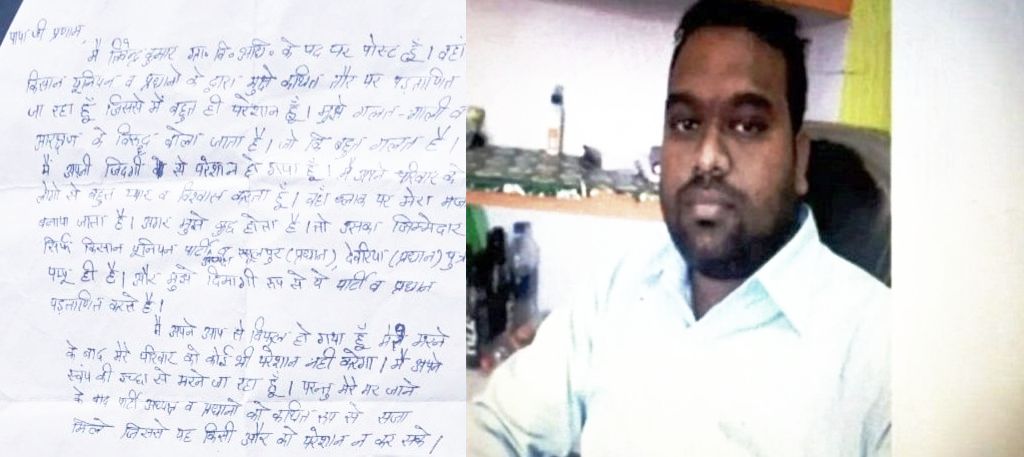 पापा जी प्रणाम,
मै त्रिवेन्द्र कुमार ग्रा० वि० अधि० के पद पर पोस्ट हूँ। वहां
किसान यूनियन व प्रधानो के द्वारा मुझे कथित तौर पर पड़ताणित
जा रहा हूँ, जिससे में बहुत ही परेशान हूँ। मुझे गलत-गाली व
आरक्षण के विरूद्ध बोला जाता है। जो कि बहुत गलत है।
मै अपनी जिदगी से परेशान हो गया हूँ। मै अपने परिवार के
लोगो से बहुत प्यार व विश्वास करता हूँ। वहां ब्लाक पर मेरा मज
बनाया जाता है। अगर मुझे कुछ होता है। तो उसका जिम्मेदार
सिर्फ किसान यूनियन पार्टी व (प्रधान), देवरिया (प्रधान) पुत्र
पप्पू ही है। और मुझे दिमागी रूप से ये पार्टी व प्रधान
पड़ताणित करते है।
मै अपने आप से विफल हो गया हूँ मेरे मरने
के बाद मेरे परिवार को कोई भी परेशान नही करेगा। मै अपने
स्वंय की इच्छा से मरने जा रहा हूँ। परन्तु मेरे मर जाने
के बाद पार्टी अध्यक्ष व प्रधानो को कथित रूप से सजा
मिले जिससे यह किसी और को परेशान न कर सके।